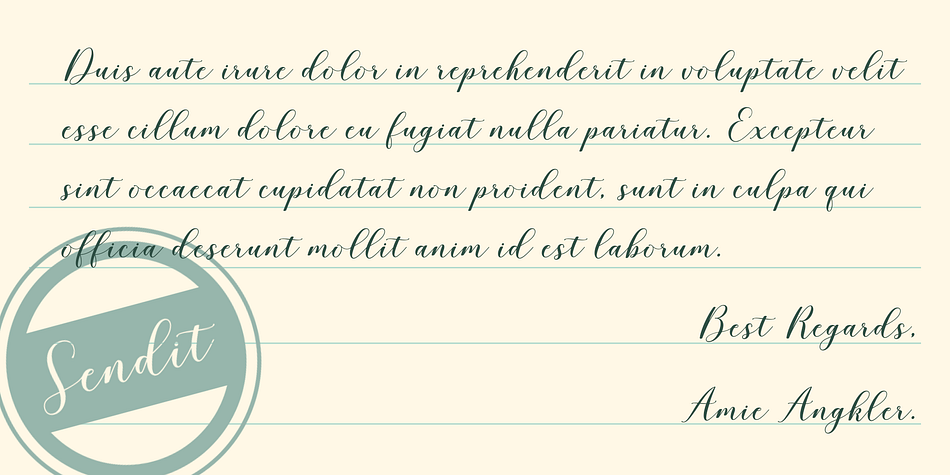 Duis aute irure dolor in reprehenderit in voluptate velit
esse cillum dolore eu fugiat nulla pariatur. Excepteur
sint occaecat cupidatat non proident, sunt in culpa qui
officia deserunt mollit anim id est laborum.
Best Regards,
Sendit
Amie Angkler.